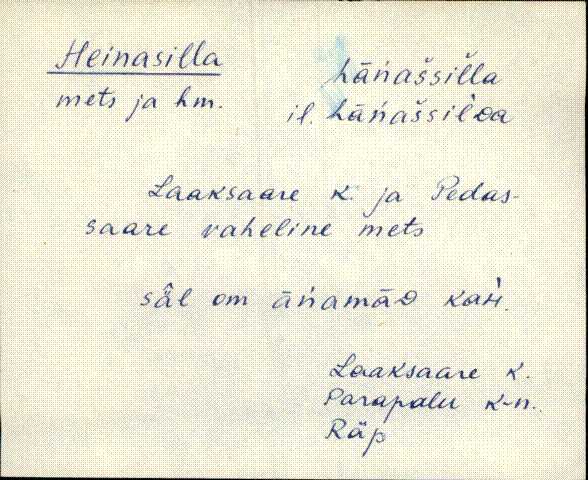 Heinasilla
mets ja hm.
hāńašsiĺla
il. hāńašsiĺᴅa
Laaksaare k. ja Pedas-
saare vaheline mets
säl om āńamāᴅ kaʜ́.
Laaksaare k.
Parapalu k-n.
Räp